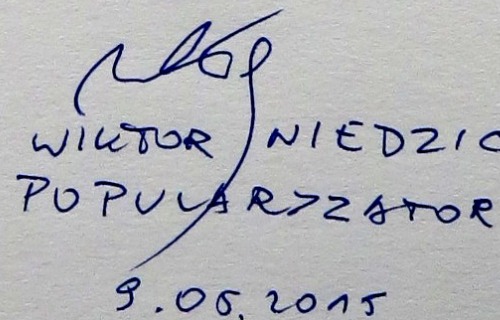 WIKTOR NIEDZIC
POPULARYZATOR
9.05.2015